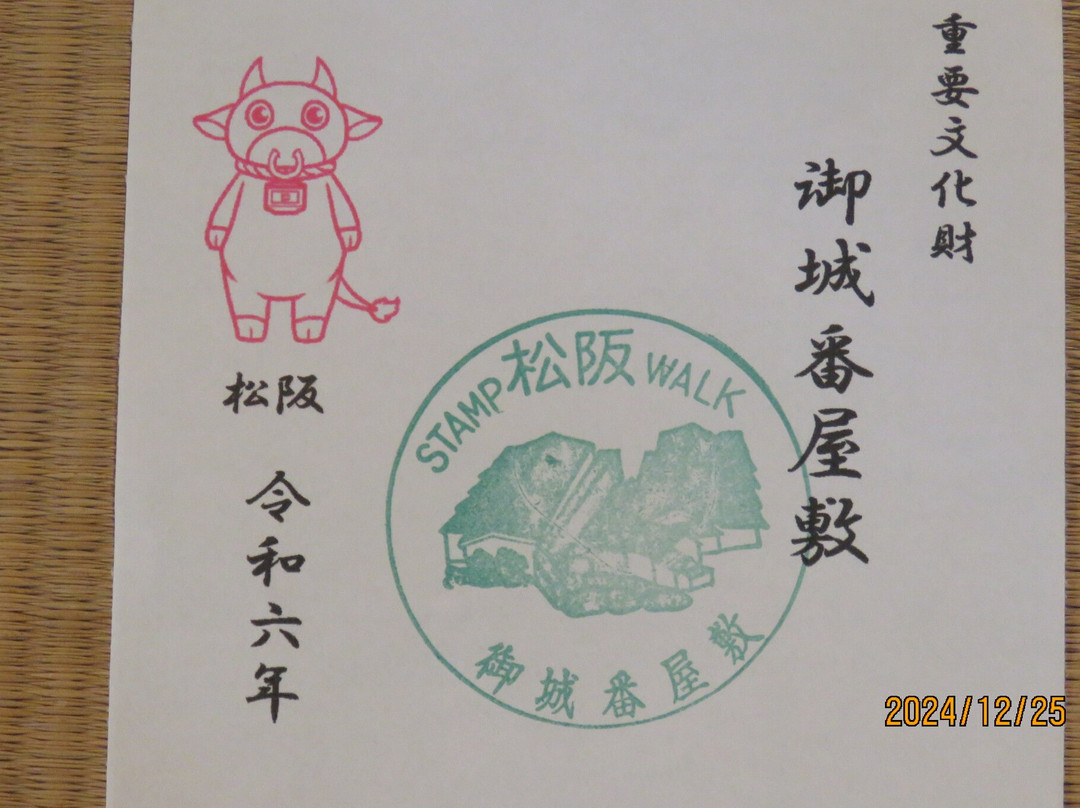 重要文化財
御城番屋敷
STAMP松阪WALK
御城番屋敷
松阪
令和六年
2024/12/25